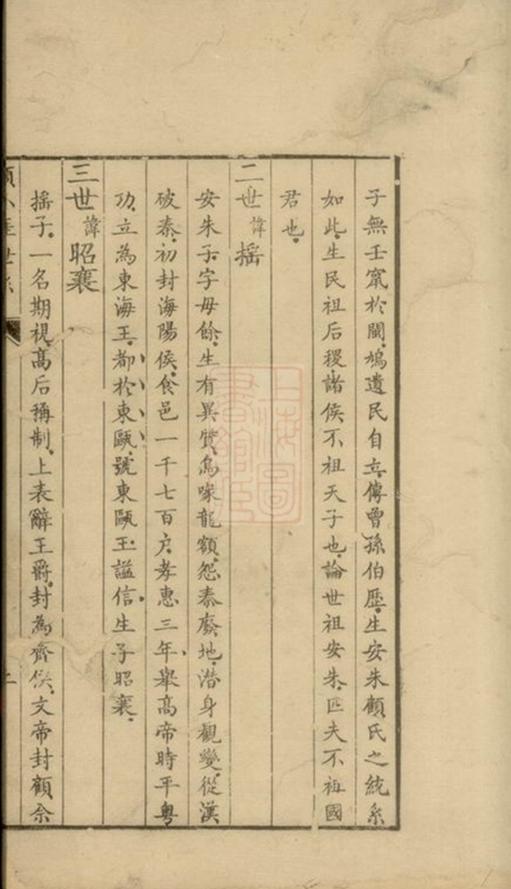 子無壬竄於閩鳩遺民自立傳曾孫伯歷生安朱顧氏之統系
如此生民祖后稷諸侯不祖天子也論世祖安朱匹夫不祖國
君也
二世諱搖
安朱子字毋餘生有異質鳥喙龍額怨秦廢地潛身觀變從漢
破秦初封海陽侯食邑一千七百户孝惠三年舉高帝時平粵
功立為東海王都於東甌號東甌王謚信生子昭襄
三世諱昭襄
搖子一名期視高后稱制上表辭王爵封為齊侯文帝封顧余
上海圖書館藏